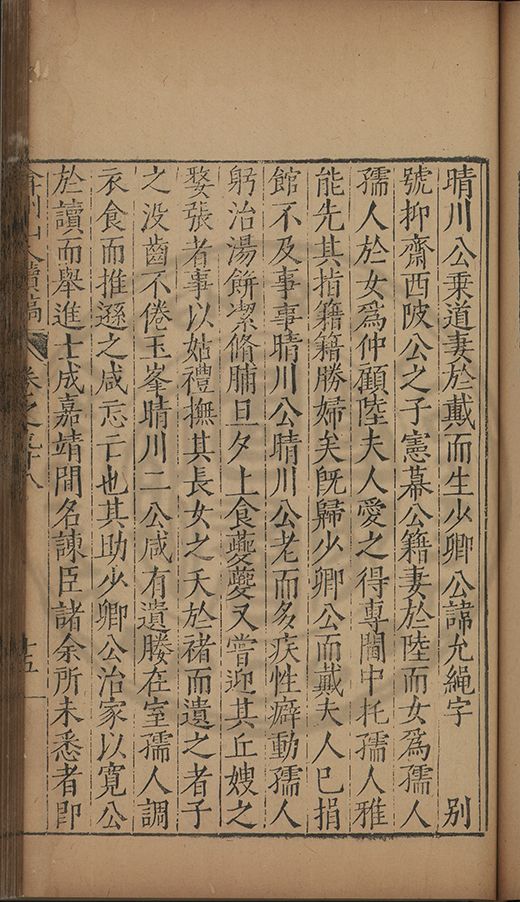 晴川公乗道妻於戴而生少卿公諱允繩字　別
號抑齋西陂公之子憲幕公籍妻於陸而女爲孺人
孺人於女爲仲顧陸夫人愛之得專閫中托孺人雅
能先其指籍籍勝婦矣旣歸少卿公而戴夫人已捐
館不及事事晴川公晴川公老而多疾性癖動孺人
躬治湯餅潔脩脯旦夕上食夔夔又嘗迎其丘嫂之
嫠張者事以姑禮撫其長女之夭於褚而遺之者子
之没齒不倦玉峯晴川二公咸有遺媵在室孺人調
衣食而推遜之咸忘亡也其助少卿公治家以寬公
於讀而舉進士成嘉靖間名諫臣諸余所未悉者卽
弇州山人續稿　卷之　十八　十五